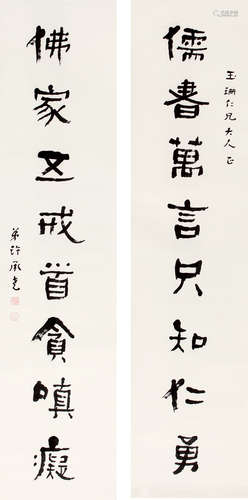 玉珊仁兄大人正
儒書萬言只知仁勇
佛家五戒首貪嗔癡
弟許承堯